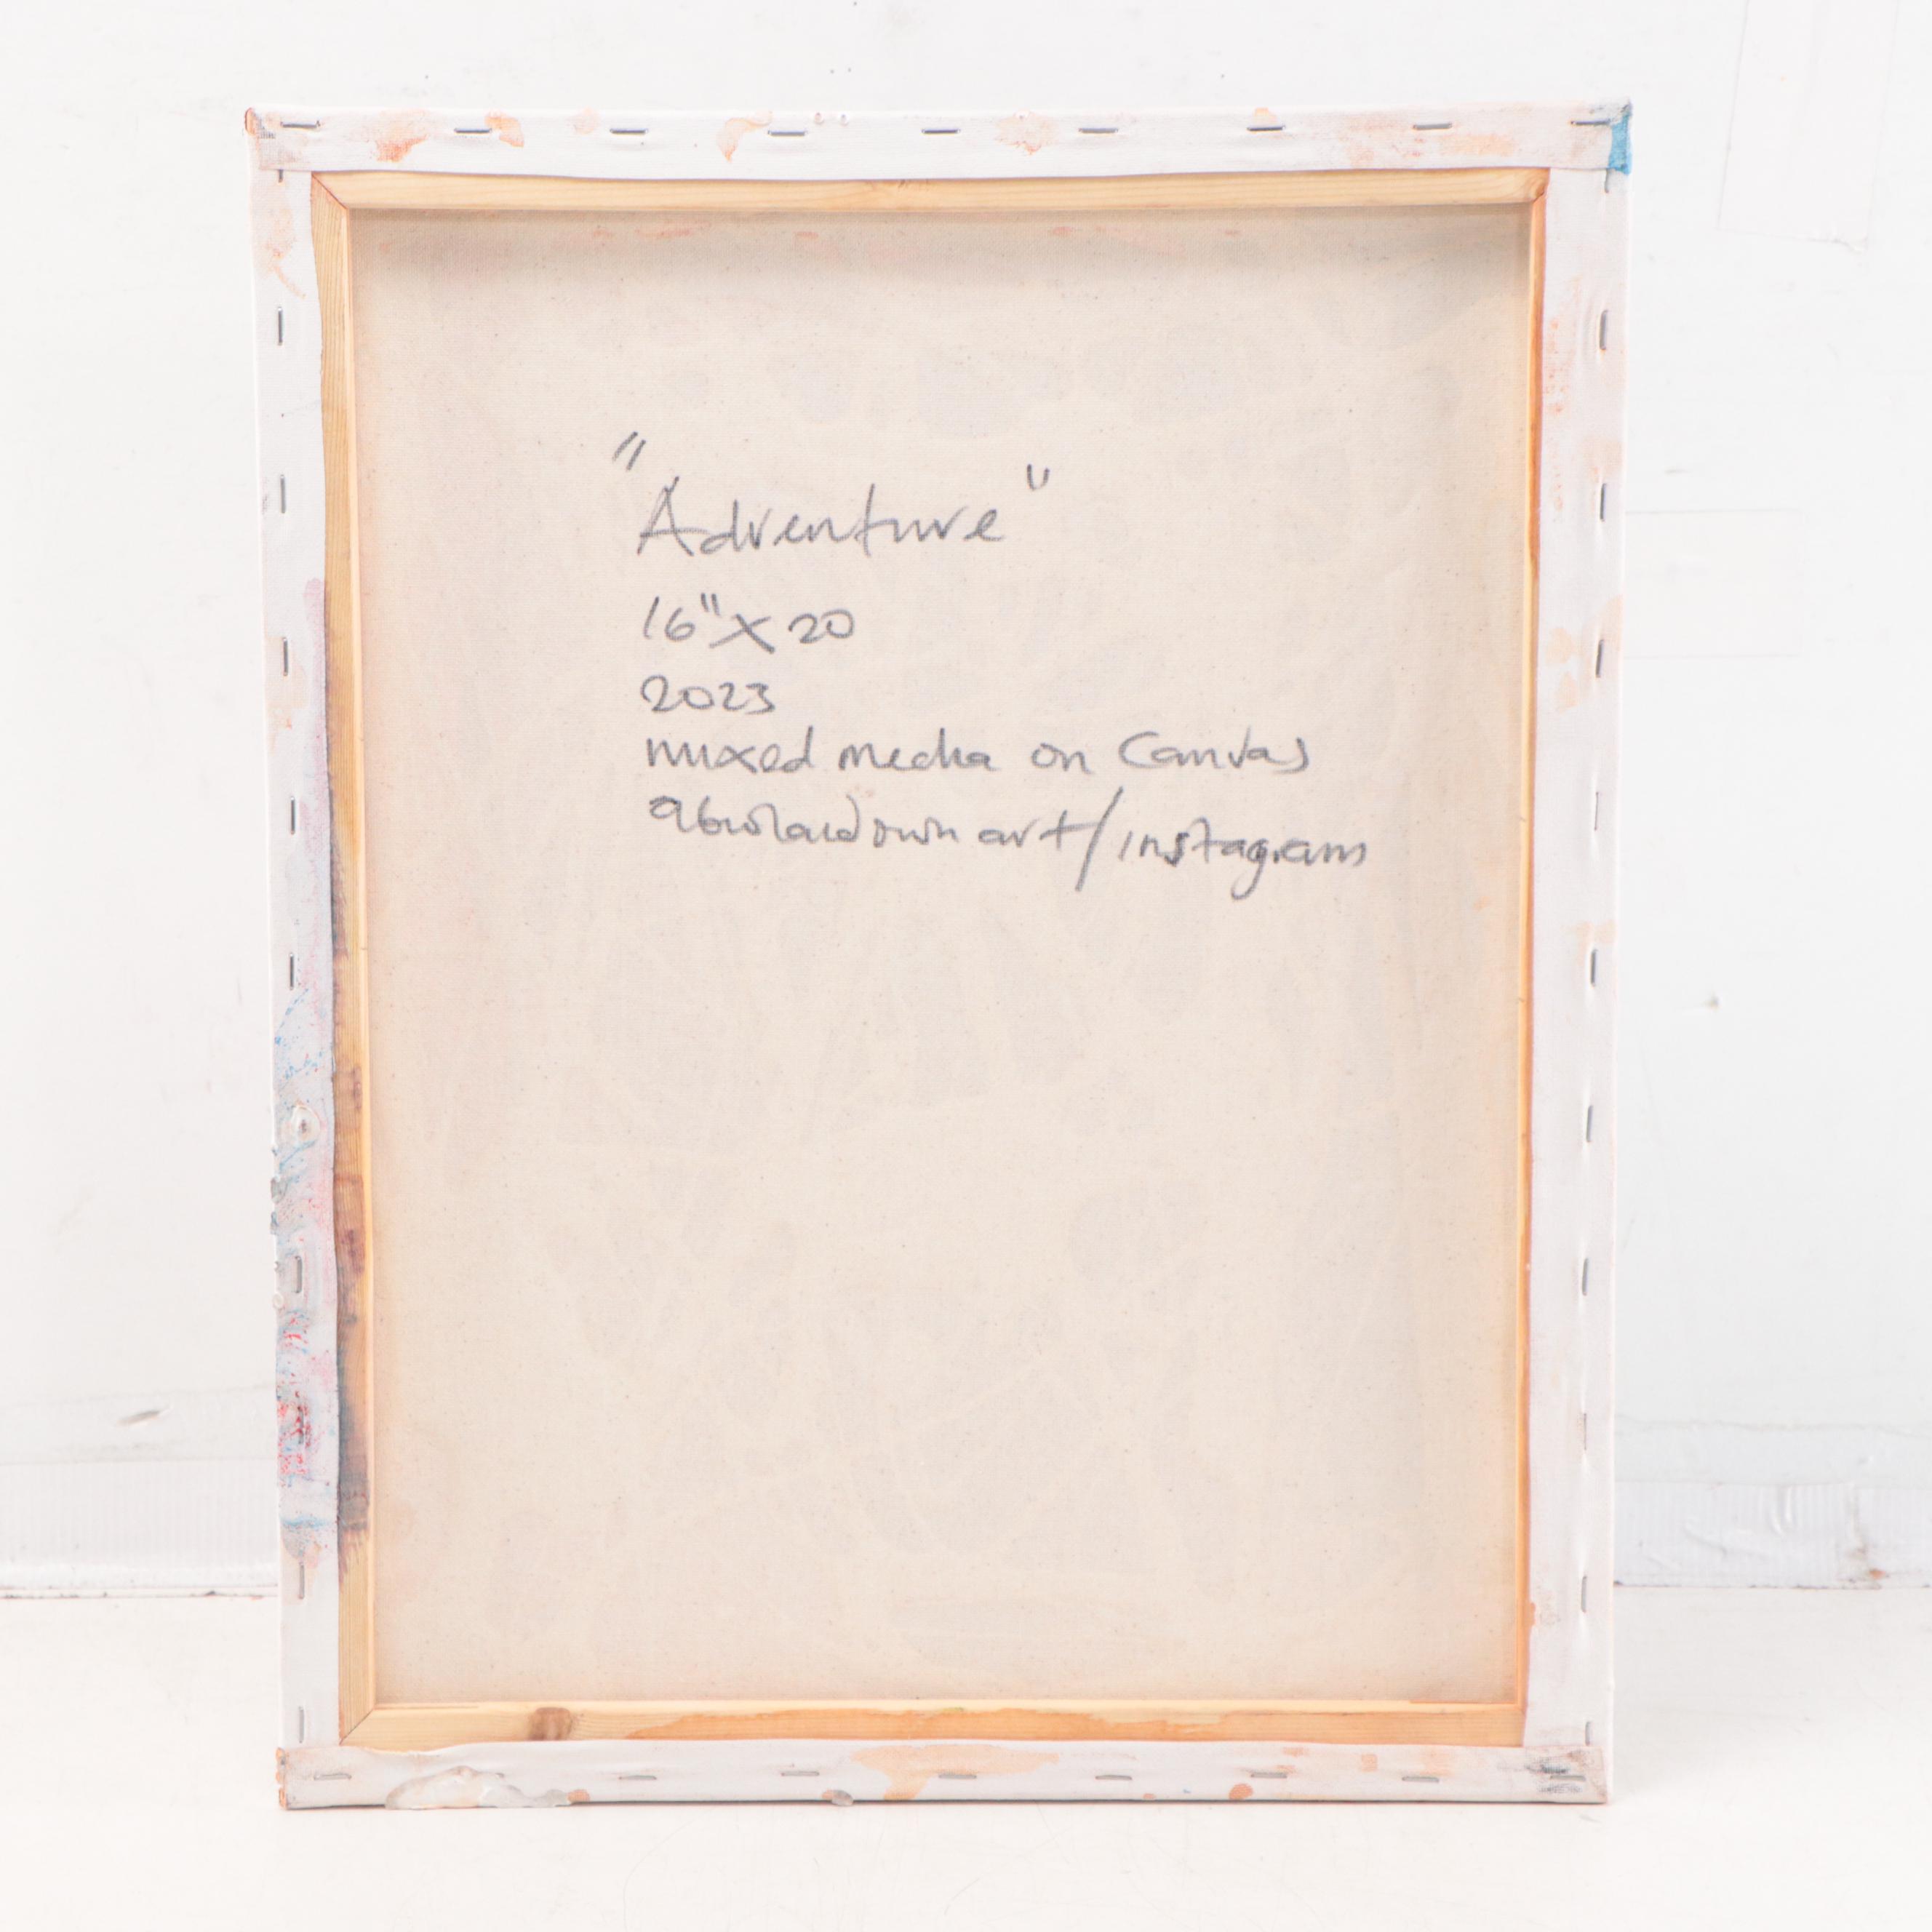 "Adventure"
16" X 20
2023
mixed media on Canvas
art/instagram